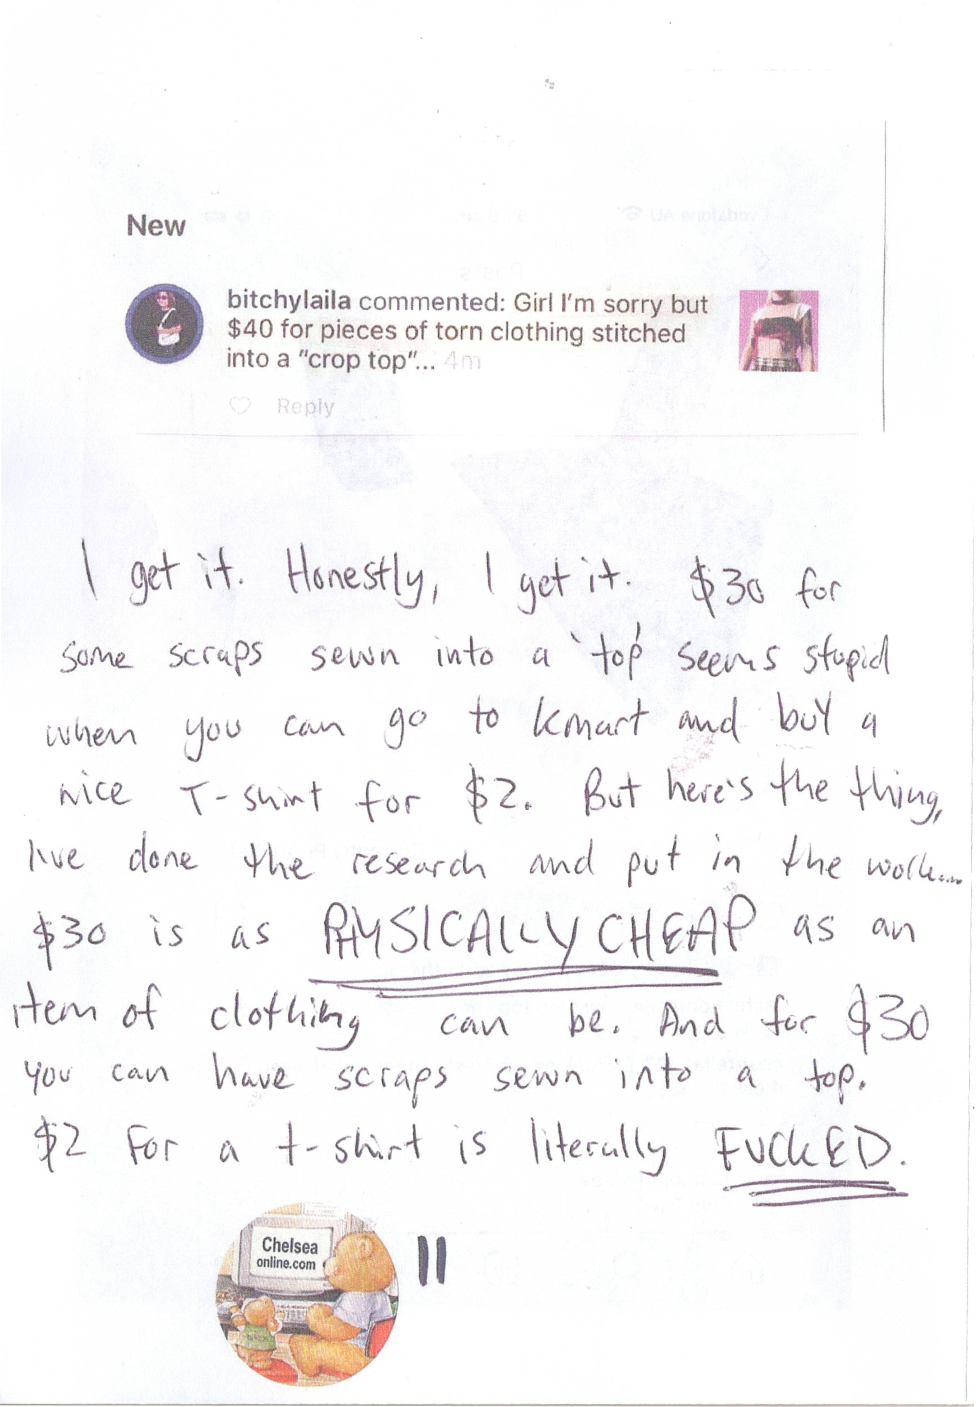 New
bitchylaila commented: Girl I'm sorry but
$40 for pieces of torn clothing stitched
into a "crop top"... 4m
Reply
I get it. Honestly, I get it. $30 for
some scraps sewn into a 'top' seems stupid
when you can go to kmart and buy a
nice T-shirt for $2. But here's the thing,
I've done the research and put in the work....
$30 is as PHYSICALLY CHEAP as an
item of clothing can be. And for $30
you can have scraps sewn into a top.
$2 for a t-shirt is literally FUCKED.
Chelsea
online.com
11